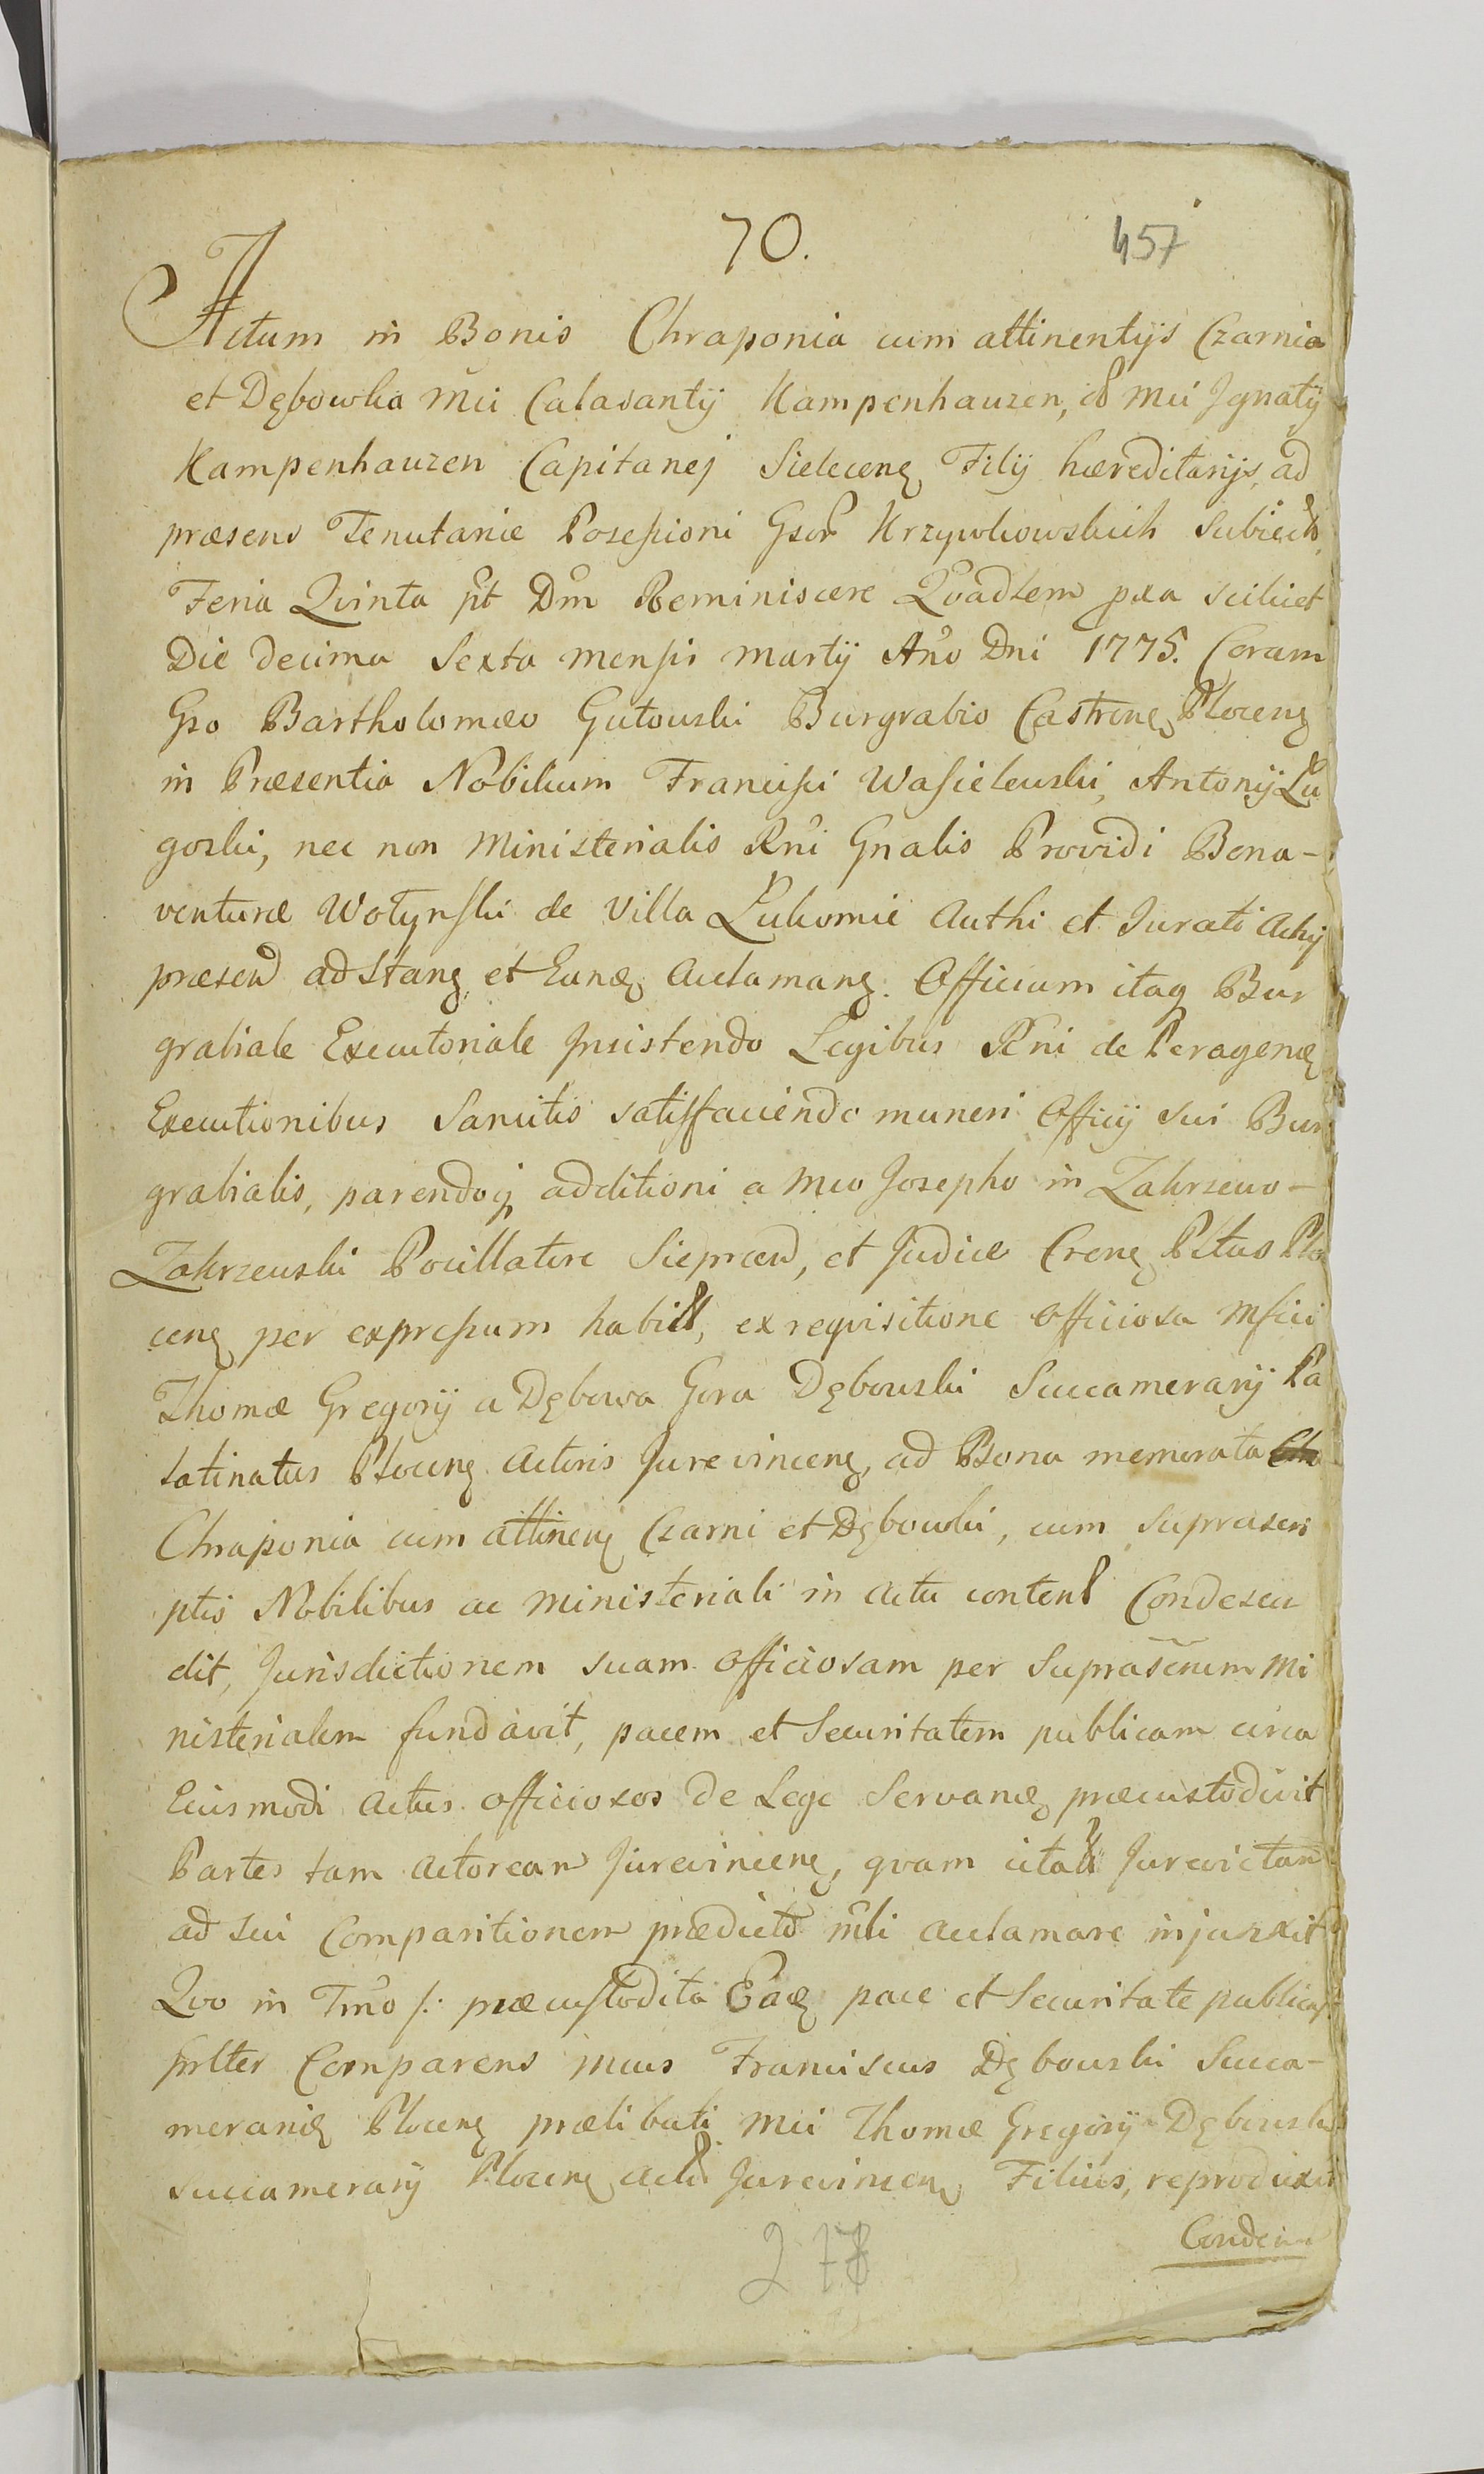 70.
457
Actum in Bonis Chraponia cum attinentijs Czarnia
et Dębowka Mci Calasantij Kampenhauzen, Mci Ignatij
Kampenhauzen Capitanej Sielecenȩ Filij hæreditarijs, ad
præsens Tenutariæ Poseſsioni Gsor Krzywkowskich Subiectis
Feria Qvinta pt Dm Reminiscere Qvadlem pxa scilicet
Die decima Sexta mensis Martij Ano Dni 1775. Coram
Gso Bartholomæo Gutowski Burgrabio Castrenȩ Plocenȩ
in Præsentia Nobilium Francisci Waſielewski, Antonij Łu
goski, nec non Ministerialis Rni Gnalis Providi Bona-
venturæ Wołynſki de Villa Łukomie Authi et Jurati Achij
præsend adstanȩ et Eundȩ aclamanȩ. Officium itaq Bur
grabiale Executoriale Insistendo Legibus Rni de Peragendȩ
Executionibus Sancitis satisfaciendo muneri Officij sui Bur
grabialis, parendoq additioni a Mco Josepho in Zakrzewo-
Zakrzewski Pocillatore Sieprcens, et Judice Crenȩ Pltus Plo
cenȩ per expreſsum habit, ex requisitione officiosa Mſici
Thomæ Gregorij a Dębowa Gora Dębowski Succamerarij Pa
latinatus Plocenȩ Actoris Jurevincenȩ, ad Bona memorata
Chraponia cum attinenȩ Czarni et Dębowki, cum suprascri
ptis Nobilibus ac Ministeriali in actu content Condescen
dit, Jurisdictionem suam officiosam per Suprascrium Mi
nisterialem fundavit, pacem et Securitatem publicam circa
Eiusmodi Actus officiosos de Lege Servandȩ præcustodivit
Partes tam actoream Jurevincenȩ, qvam citatam Jurevictam
ad sui Comparitionem prædicto mli aclamare injunxit
Qvo in Tmo /: præcustodita Eadȩ pace et Securitate publica :/
prlter Comparens Mcus Franciscus Dębowski Succa-
meraridȩ Plocenȩ prælibati Mci Thomæ Gregorij Dębowski
Succamerarij Plocenȩ act Jurevincenȩ Filius, reproduxit
278